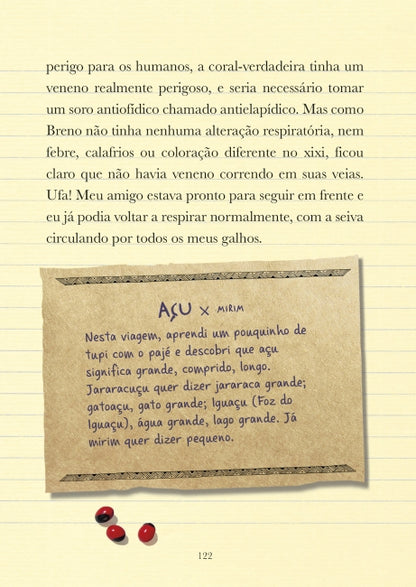 perigo para os humanos, a coral-verdadeira tinha um
veneno realmente perigoso, e seria necessário tomar
um soro antiofídico chamado antielapídico. Mas como
Breno não tinha nenhuma alteração respiratória, nem
febre, calafrios ou coloração diferente no xixi, ficou
claro que não havia veneno correndo em suas veias.
Ufa! Meu amigo estava pronto para seguir em frente e
eu já podia voltar a respirar normalmente, com a seiva
circulando por todos os meus galhos.
AÇU x MIRIM
Nesta viagem, aprendi um pouquinho de
tupi com o pajé e descobri que açu
significa grande, comprido, longo.
Jararacuçu quer dizer jararaca grande;
gatoaçu, gato grande; Iguaçu (Foz do
Iguaçu), água grande, lago grande. Já
mirim quer dizer pequeno.
122